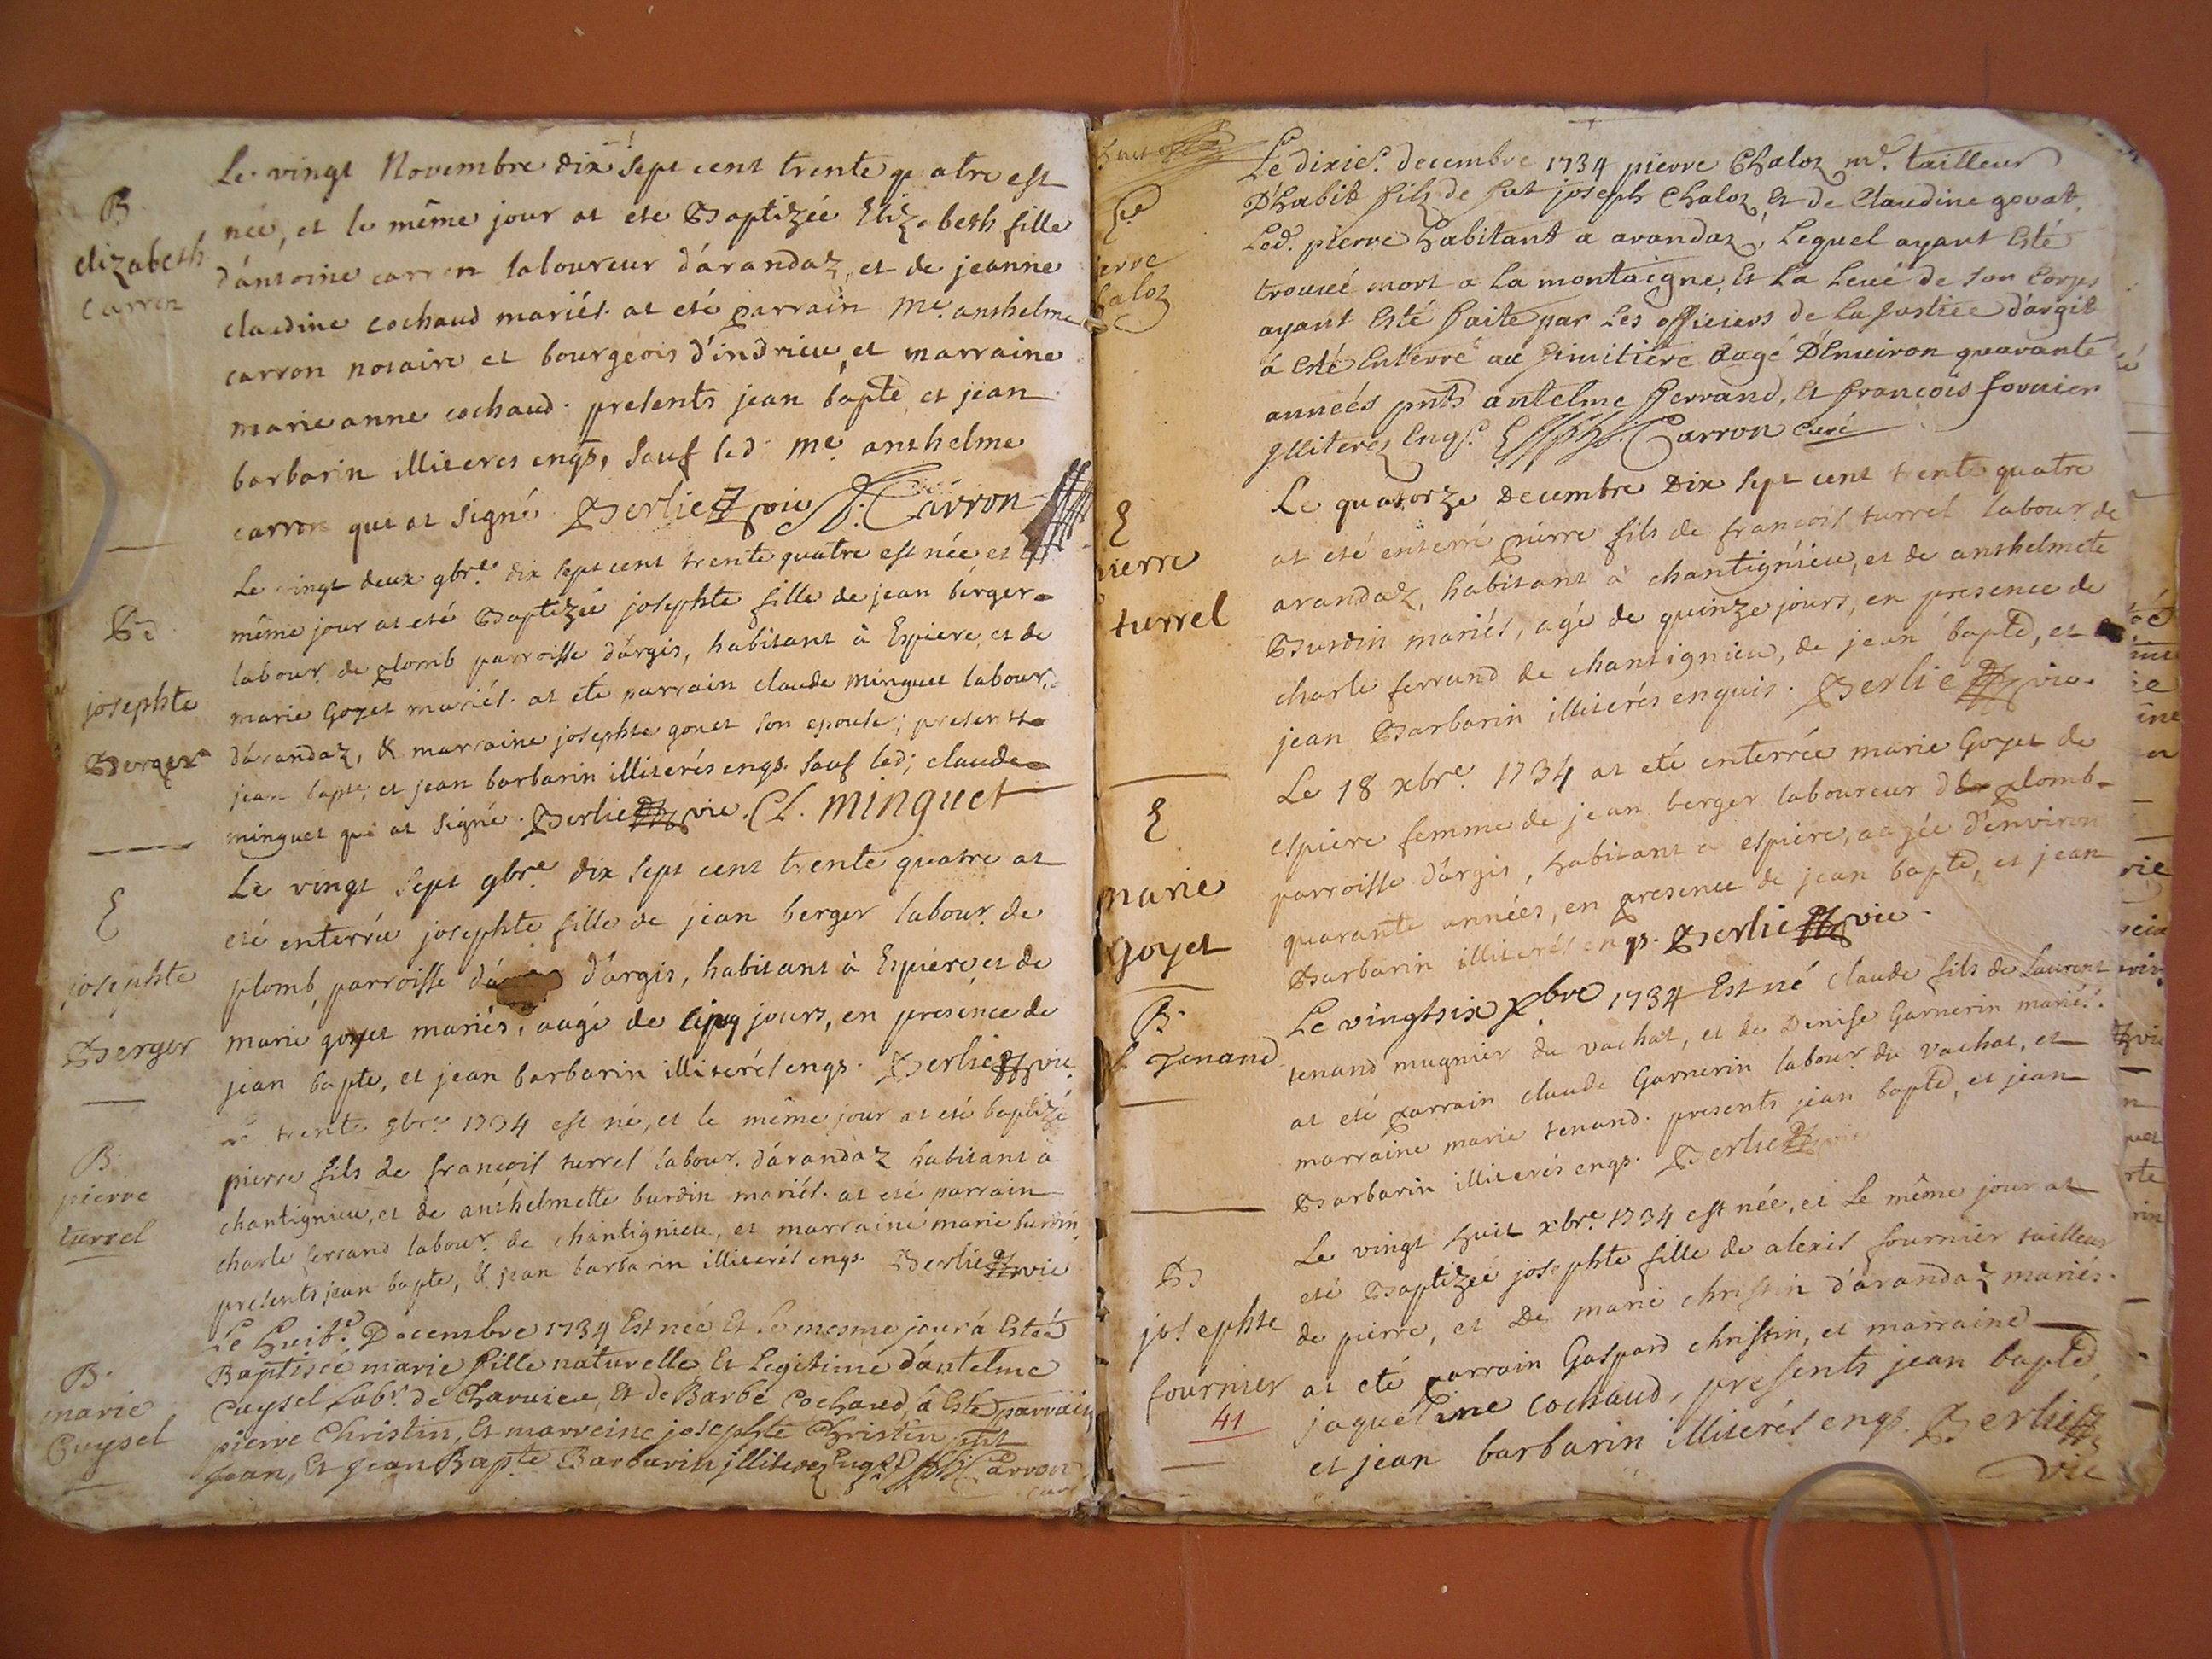 B
elizabeth
carron
Le vingt Novembre dix sept cent trente quatre est
née, et le même jour at eté Baptizée Elizabeth fille
d'antoine carron laboureur d'arandaz, et de jeanne
claudine cochaud mariés. at eté parrain Me. anthelme
carron notaire et bourgeois d'indrieu, et marraine
marie anne cochaud. presents jean bapte, et jean
barbarin illiteres enqs, sauf led. Me. anthelme
carron qui at signé. Berlie vic Carron
Bd.
josephte
Berger
Le vingt deux gbre. dix sept cent trente quatre est née et le
même jour at eté Baptizée josephte fille de jean berger
labour. de plomb parroisse d'argis, habitant à Espiere, et de
marie Goyet mariés. at eté parrain claude minguet labour.
d'arandaz, & marraine josephte gonet son epouse; presents
jean bapte, et jean barbarin illiterés enqs. sauf led; claude
minguet qui at signé. Berlie vic. CL. minguet
E
josephte
Berger
Le vingt sept gbre. dix sept cent trente quatre at
eté enterrée josephte fille de jean berger labour. de
plomb, parroisse d'argis, habitant à Espiere et de
marie goyet mariés, aagé de cinq jours, en présence de
jean bapte, et jean barbarin illiterés enqs. Berlie vic.
B.
pierre
turrel
Le trente gbre. 1734 est né, et le même jour at eté baptizé
pierre fils de francois turrel labour. d'arandaz habitant à
chantignieu, et de anthelmette burdin mariés. at eté parrain
charle ferrand labour. de chantignieu, et marraine marie burdin
presents jean bapte, & jean barbarin illiterés enqs. Berlie vic
B.
marie
Cuysel
Le huite. Decembre 1734 Est née Et le mesme jour à Estée
Baptisée marie fille naturelle Et Legitime d'antelme
Cuysel Labr. de Charvieu, Et de Barbe Cochaud, à Esté parrain
pierre Christin, Et marreine josephte Christin, pnt
Jean, Et Jean Bapte Barbarin jlliterez Enqs. Carron
curé
E
pierre
chaloz
Le dixie. decembre 1734 pierre Chaloz me. tailleur
D'habit fils de fut joseph Chaloz, Et de Claudine govat,
Led. pierre habitant a arandaz, Lequel ayant Esté
trouvé mort a La montaigne, Et La Levé de son Corps
ayant Esté faite par Les officiers de La Justice d'argit
à Esté Enterré au Simitiére aagé D'Environ quarante
années pnts antelme ferrand, Et francois fornier
Jlliterez Enqs. Carron curé
E
pierre
turrel
Le quatorze Decembre Dix sept cent trente quatre
at eté enterré pierre fils de francois turrel labour. de
arandaz, habitant à chantignieu, et de anthelmete
Burdin mariés, agé de quinze jours, en presence de
charle ferrand de chantignieu, de jean bapte, et
jean Barbarin illiterés enquis. Berlie vic.
E
marie
Goyet
Le 18 xbre. 1734 at eté enterrée marie Goyet de
espiere femme de jean berger laboureur de plomb
parroisse d'argis, habitant a espiere, aagée d'environ
quarante années, en presence de jean bapte, et jean
Barbarin illiterés enqs. Berlie vic.
B.
Tenand
Le vingtsix xbre 1734 Est né claude fils de Laurent
tenand mugnier du vachat, et de Denise Garnerin mariés.
at eté parrain claude Garnerin labour. du vachat, et
marraine marie tenand. presents jean bapte, et jean
Barbarin illiterés enqs. Berlie vic
B
josephte
fournier
41
Le vingt huit xbre. 1734 est née, et Le même jour at
eté Baptizée josephte fille de alexis fournier tailleur
de pierre, et De marie christin d'arandaz mariés.
at eté parrain Gaspard christin, et marraine
jaqueline cochaud, presents jean bapte,
et jean barbarin illiterés enqs. Berlie
vic